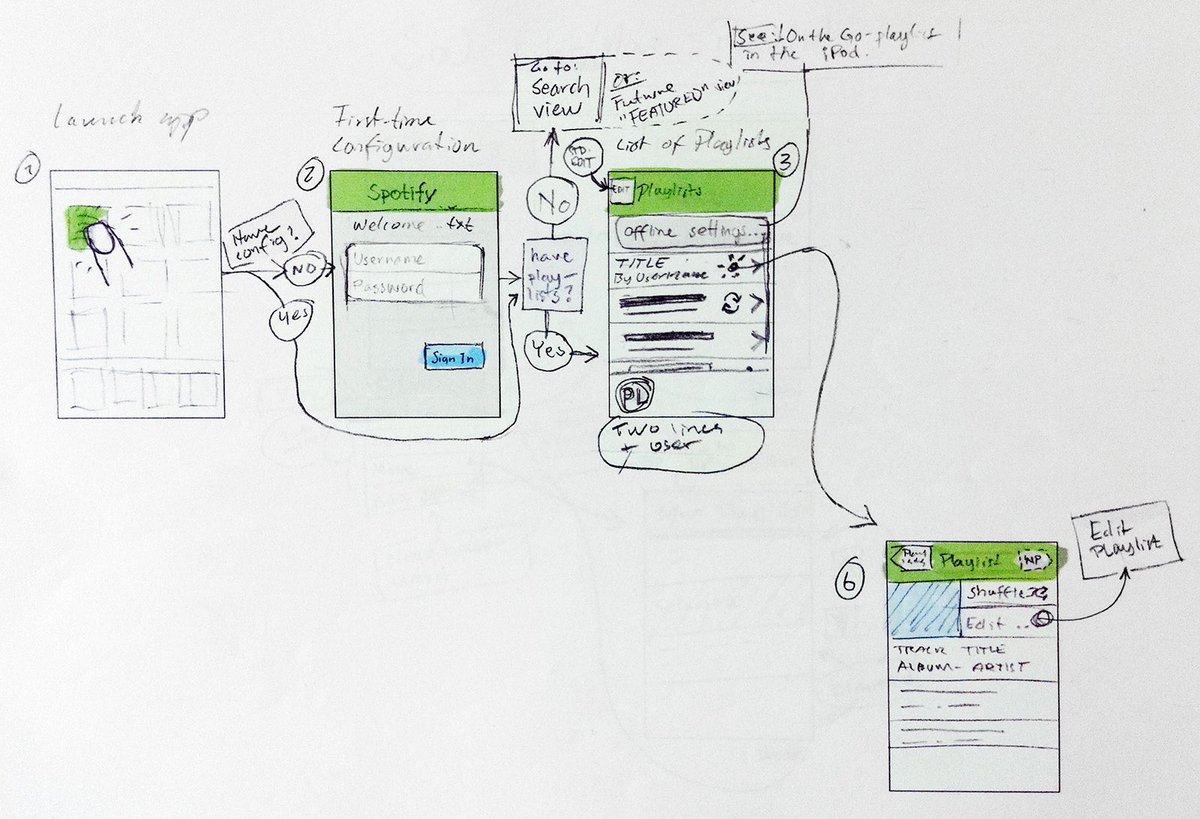 Launch app
1
Have
config?
NO
Yes
First-time
Configuration
2
Spotify
Welcome .. txt
Username
Password
Sign In
have
play-
lists?
No
Yes
Go to:
Search
view
or:
Future
"FEATURED" view
See: On the Go-playlist
in the iPod.
List of Playlists
3
EDIT
EDIT
Playlists
Offline settings...
TITLE
By Username
PL
TWO lines
+ user
6
Playlist
NP
Shuffle
Edit ..
TRACK TITLE
ALBUM - ARTIST
Edit
Playlist